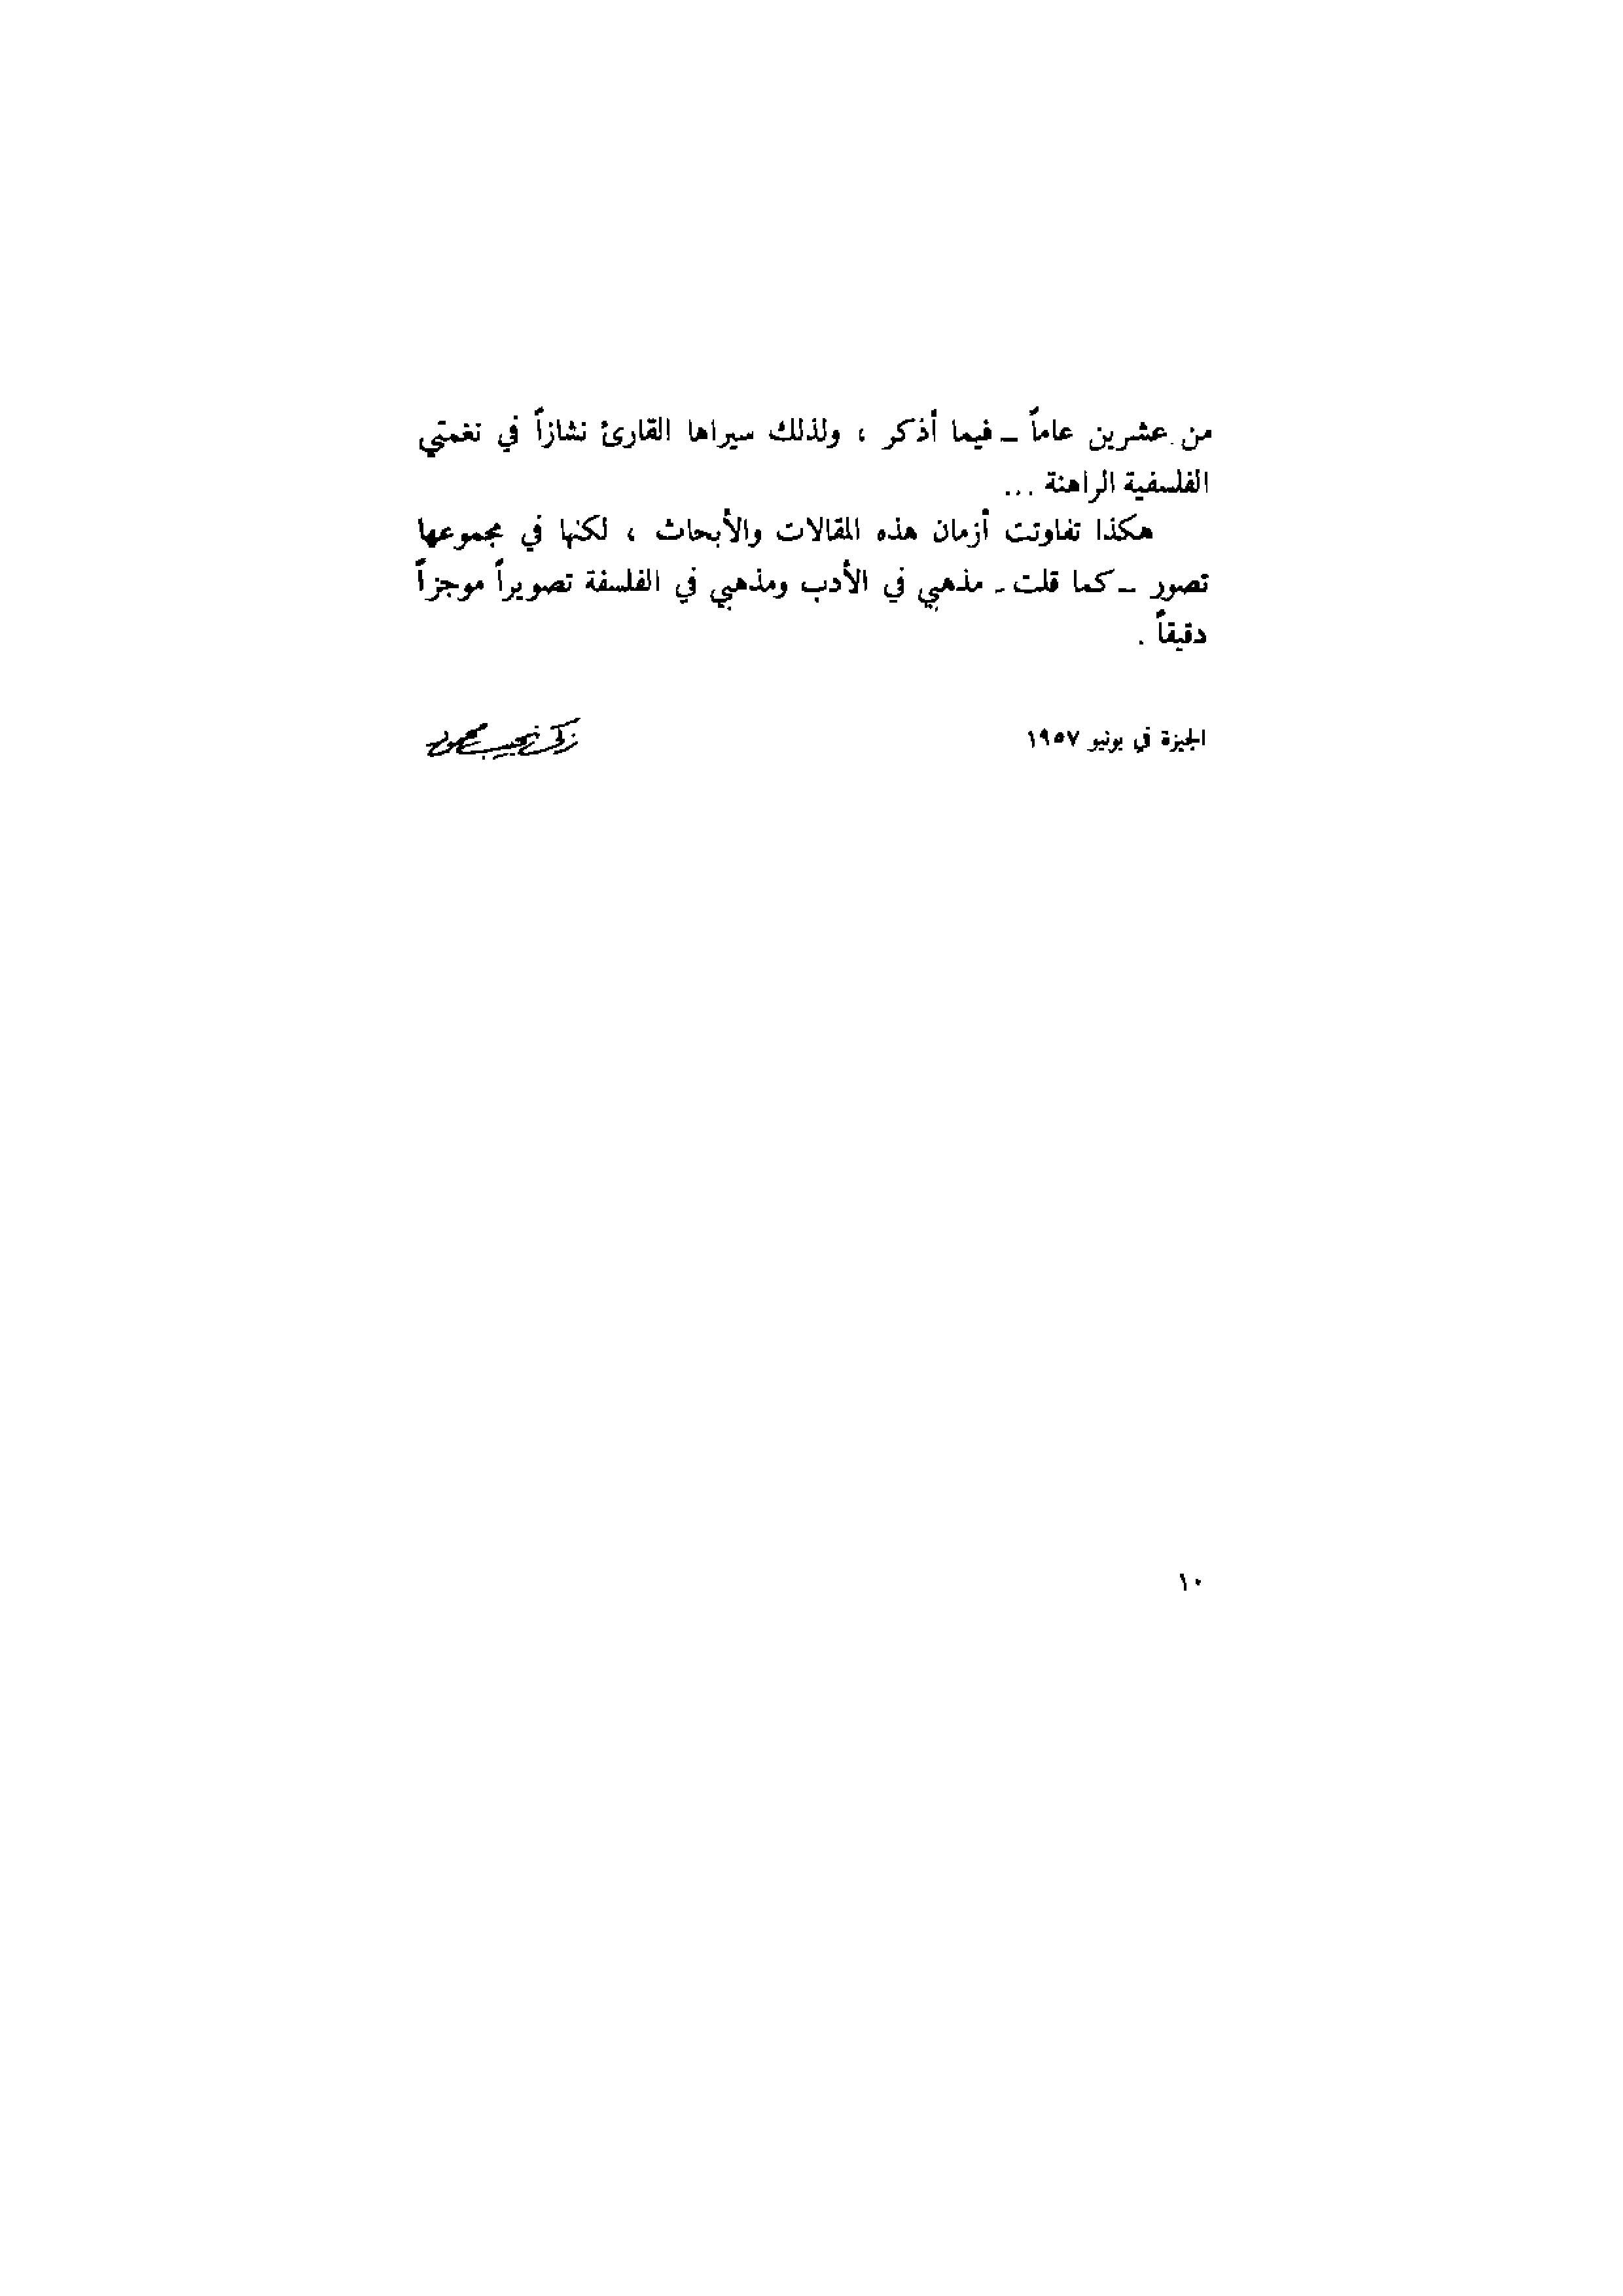 من عشرين عاماً – فيما أذكر ، ولذلك سيراها القارئ نشازاً في نغمتي
الفلسفية الراهنة ...
هكذا تفاوتت أزمان هذه المقالات والأبحاث ، لكنها في مجموعها
تصور – كما قلت – مذهبي في الأدب ومذهبي في الفلسفة تصويراً موجزاً
دقيقاً .
الجيزة في يونيو ١٩٥٧
زكي نجيب محمود
١٠